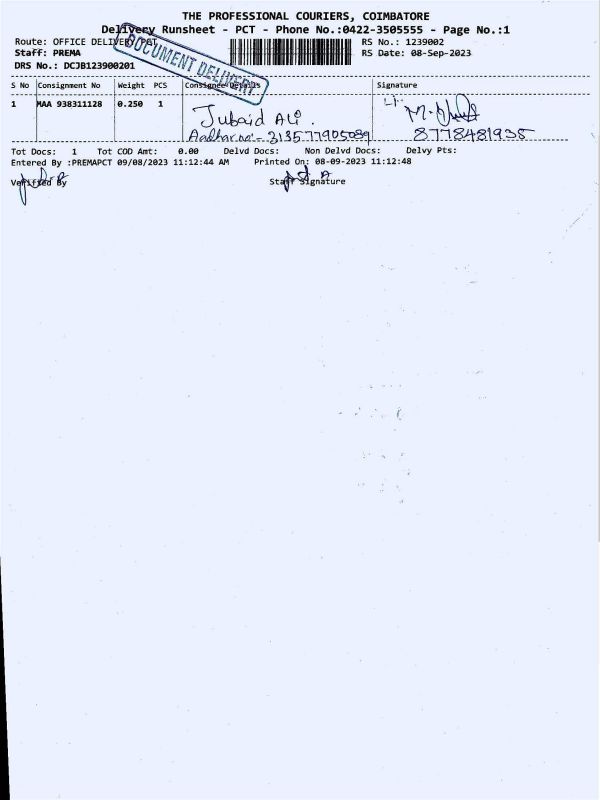 THE PROFESSIONAL COURIERS, COIMBATORE
Delivery Runsheet - PCT - Phone No.:0422-3505555 - Page No.:1
Route: OFFICE DELIVERY PCT RS No.: 1239002
Staff: PREMA RS Date: 08-Sep-2023
DRS No.: DCJB123900201
DOCUMENT DELIVERY
S No Consignment No Weight PCS Consignee Details Signature
1 MAA 938311128 0.250 1
Jubaid Ali.
Aadhar no - 313577905089 8778481935
Tot Docs: 1 Tot COD Amt: 0.00 Delvd Docs: Non Delvd Docs: Delvy Pts:
Entered By :PREMAPCT 09/08/2023 11:12:44 AM Printed On: 08-09-2023 11:12:48
Verified By Staff Signature